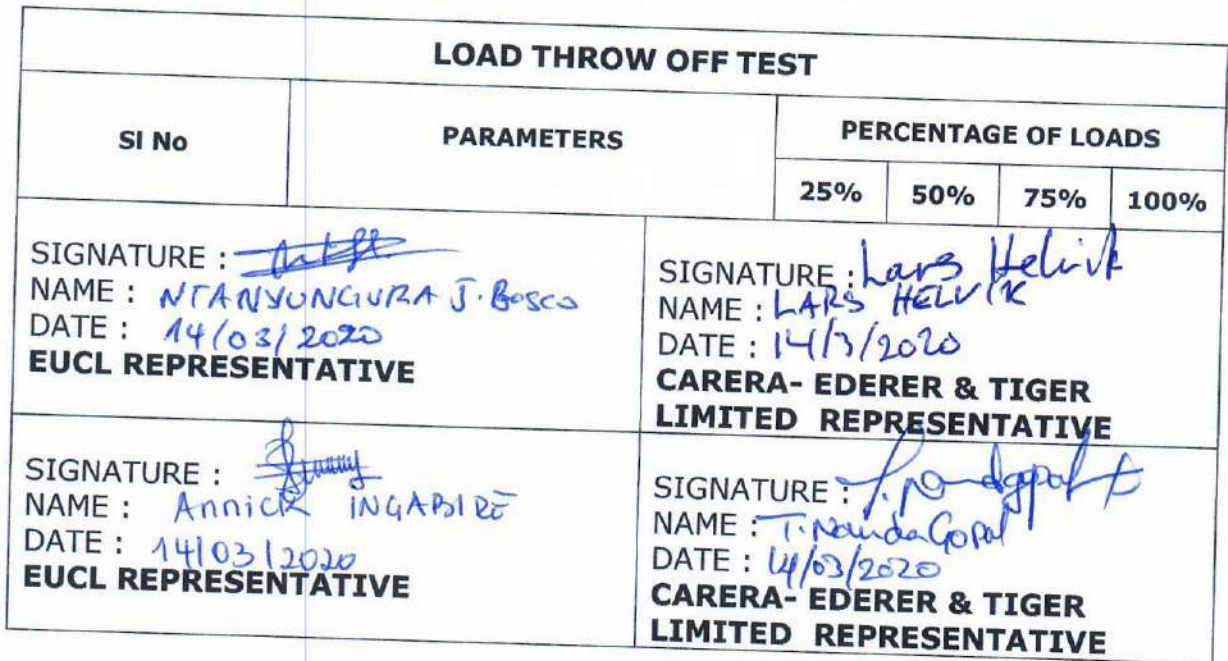 LOAD THROW OFF TEST
Sl No
PARAMETERS
PERCENTAGE OF LOADS
25% 50% 75% 100%
SIGNATURE :
NAME : NTANYUNGURA J. Bosco
DATE : 14/03/2020
EUCL REPRESENTATIVE
SIGNATURE : Lars Helvik
NAME : LARS HELVIK
DATE : 14/3/2020
CARERA- EDERER & TIGER
LIMITED REPRESENTATIVE
SIGNATURE :
NAME : Annick INGABIRE
DATE : 14/03/2020
EUCL REPRESENTATIVE
SIGNATURE :
NAME : T. Nanda Gopal
DATE : 14/03/2020
CARERA- EDERER & TIGER
LIMITED REPRESENTATIVE